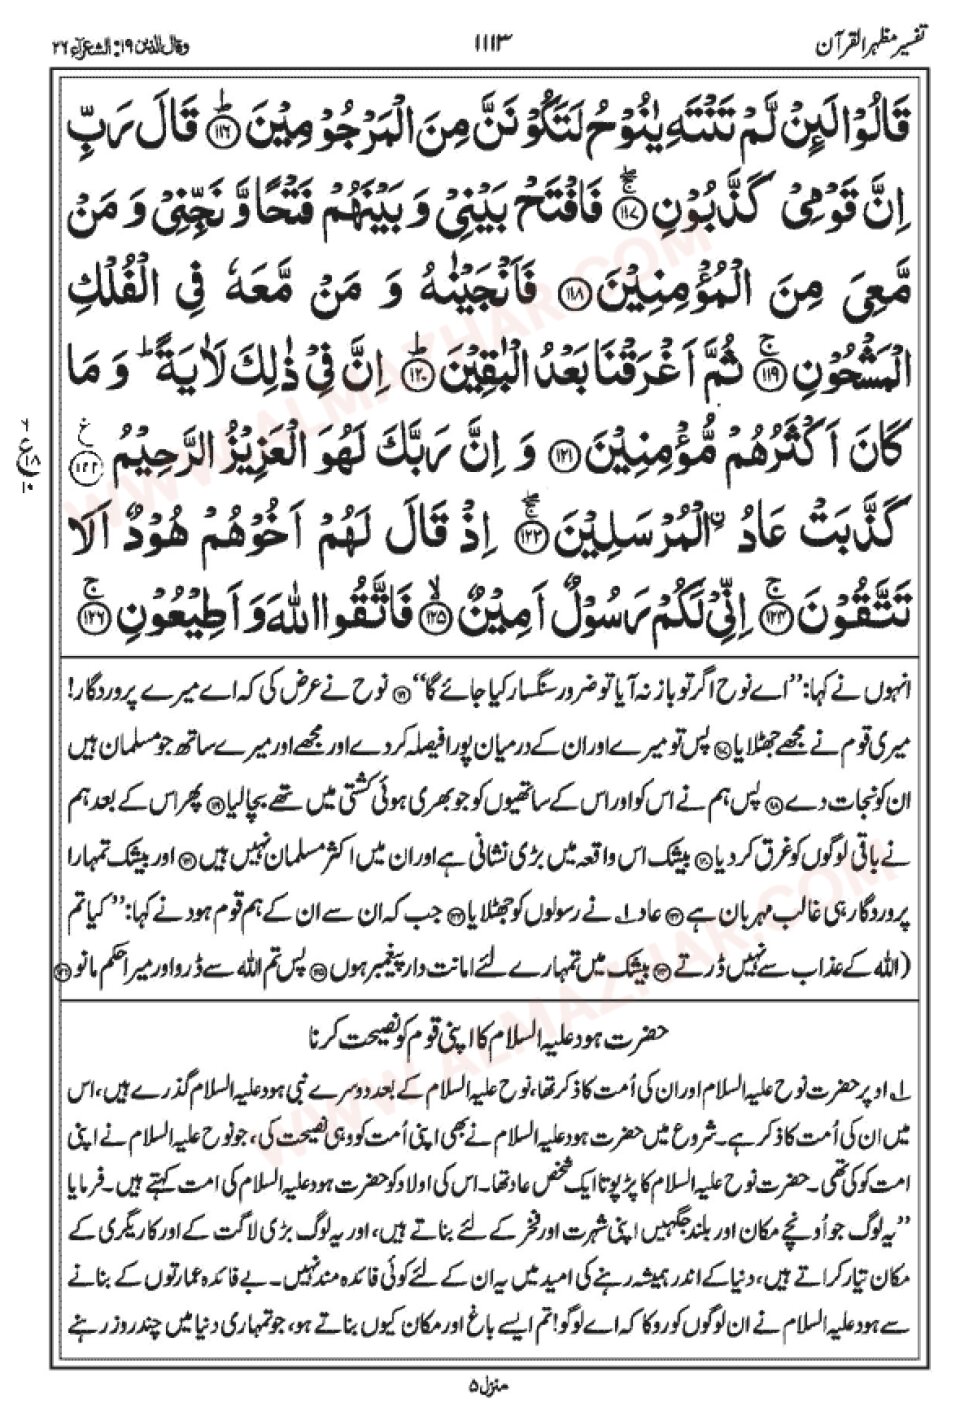 تفسیر مظہر القرآن
۱۱۱۳
وقال الذین ۱۹: الشعرآء ۲۶
قَالُوْا لَئِنْ لَّمْ تَنْتَهِ یٰنُوْحُ لَتَكُوْنَنَّ مِنَ الْمَرْجُوْمِیْنَ ﴿۱۱۶﴾ؕ قَالَ رَبِّ
اِنَّ قَوْمِیْ كَذَّبُوْنِ ﴿۱۱۷﴾ۚۖ فَافْتَحْ بَیْنِیْ وَ بَیْنَهُمْ فَتْحًا وَّ نَجِّنِیْ وَ مَنْ
مَّعِیَ مِنَ الْمُؤْمِنِیْنَ ﴿۱۱۸﴾ فَاَنْجَیْنٰهُ وَ مَنْ مَّعَهٗ فِی الْفُلْكِ
الْمَشْحُوْنِ ﴿۱۱۹﴾ۚ ثُمَّ اَغْرَقْنَا بَعْدُ الْبٰقِیْنَ ﴿۱۲۰﴾ؕ اِنَّ فِیْ ذٰلِكَ لَاٰیَةً ؕ وَ مَا
كَانَ اَكْثَرُهُمْ مُّؤْمِنِیْنَ ﴿۱۲۱﴾ وَ اِنَّ رَبَّكَ لَهُوَ الْعَزِیْزُ الرَّحِیْمُ ﴿۱۲۲﴾
۶ ع ۱۸ ۱۰
كَذَّبَتْ عَادُ ِ۟الْمُرْسَلِیْنَ ﴿۱۲۳﴾ۚۖ اِذْ قَالَ لَهُمْ اَخُوْهُمْ هُوْدٌ اَلَا
تَتَّقُوْنَ ﴿۱۲۴﴾ۚ اِنِّیْ لَكُمْ رَسُوْلٌ اَمِیْنٌ ﴿۱۲۵﴾ۙ فَاتَّقُوا اللّٰهَ وَ اَطِیْعُوْنِ ﴿۱۲۶﴾ۚ
انہوں نے کہا: ’’اے نوح اگر تو باز نہ آیا تو ضرور سنگسار کیا جائے گا‘‘ ﴿۱۱۶﴾ نوح نے عرض کی کہ اے میرے پروردگار!
میری قوم نے مجھے جھٹلایا ﴿۱۱۷﴾ پس تو میرے اور ان کے درمیان پورا فیصلہ کر دے اور مجھے اور میرے ساتھ جو مسلمان ہیں
ان کو نجات دے ﴿۱۱۸﴾ پس ہم نے اس کو اور اس کے ساتھیوں کو جو بھری ہوئی کشتی میں تھے بچا لیا ﴿۱۱۹﴾ پھر اس کے بعد ہم
نے باقی لوگوں کو غرق کر دیا ﴿۱۲۰﴾ بیشک اس واقعہ میں بڑی نشانی ہے اور ان میں اکثر مسلمان نہیں ہیں ﴿۱۲۱﴾ اور بیشک تمہارا
پروردگار ہی غالب مہربان ہے ﴿۱۲۲﴾ عاد۱؎ نے رسولوں کو جھٹلایا ﴿۱۲۳﴾ جب کہ ان سے ان کے ہم قوم ہود نے کہا: ’’کیا تم
(اللہ کے عذاب سے نہیں ڈرتے ﴿۱۲۴﴾ بیشک میں تمہارے لئے امانت دار پیغمبر ہوں ﴿۱۲۵﴾ پس تم اللہ سے ڈرو اور میرا حکم مانو ﴿۱۲۶﴾
حضرت ہود علیہ السلام کا اپنی قوم کو نصیحت کرنا
۱؎ اوپر حضرت نوح علیہ السلام اور ان کی اُمت کا ذکر تھا، نوح علیہ السلام کے بعد دوسرے نبی ہود علیہ السلام گذرے ہیں، اس
میں ان کی اُمت کا ذکر ہے۔ شروع میں حضرت ہود علیہ السلام نے بھی اپنی اُمت کو وہی نصیحت کی، جو نوح علیہ السلام نے اپنی
امت کو کی تھی۔ حضرت نوح علیہ السلام کا پڑپوتا ایک شخص عاد تھا۔ اس کی اولاد کو حضرت ہود علیہ السلام کی امت کہتے ہیں۔ فرمایا
’’یہ لوگ جو اُونچے مکان اور بلند جگہیں اپنی شہرت اور فخر کے لئے بناتے ہیں، اور یہ لوگ بڑی لاگت کے اور کاریگری کے
مکان تیار کراتے ہیں، دنیا کے اندر ہمیشہ رہنے کی امید میں یہ ان کے لئے کوئی فائدہ مند نہیں۔ بے فائدہ عمارتوں کے بنانے
سے ہود علیہ السلام نے ان لوگوں کو روکا کہ اے لوگو! تم ایسے باغ اور مکان کیوں بناتے ہو، جو تمہاری دنیا میں چند روز رہنے
منزل ۵
WWW.ALMAZHAR.COM
WWW.ALMAZHAR.COM